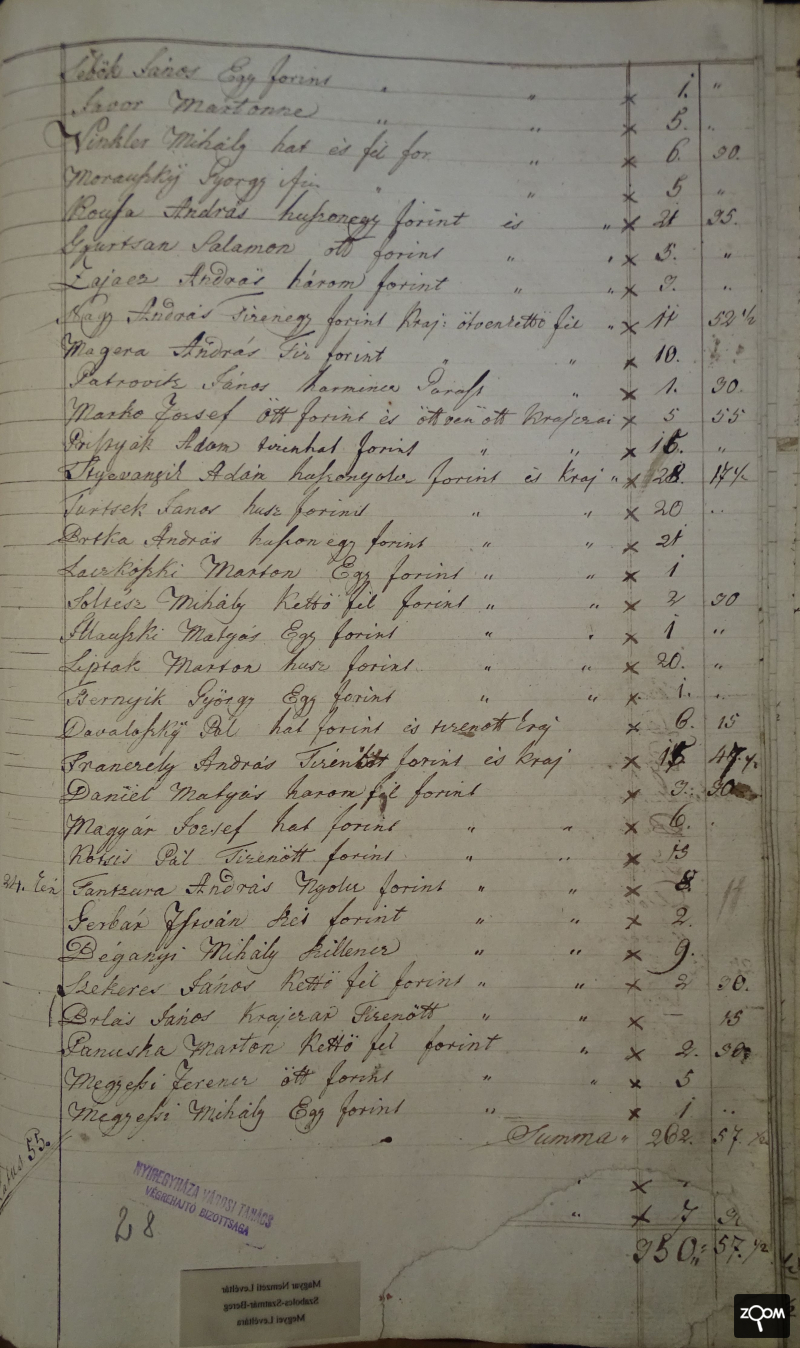 Sebök János Egy forint " " x 1. "
Javor Martonne " " x 5. "
Winkler Mihály hat és fél for. " x 6. 30.
György " " x 5 "
András huszonegy forint és " x 21 35.
Gyurtsan Salamon ött forint " " x 5. "
Zajacz András három forint " " x 3. "
Nagy András Tizenegy forint Kraj: ötvenkettö fél " x 11 52 ½
Magera András Tiz forint " " x 10.
Patrovik János harmincz " x 1. 30.
Marko Jozsef Ött forint és öttven ött Krajczár x 5 55
Adam tizenhat forint " " x 16. "
Adám huszonyolcz forint és Kraj " x 28. 17 ½
Turtsek János husz forint " " x 20 "
Brtka András huszonegy forint " " x 21
Laczkoszki Marton Egy forint " " x 1
Soltész Mihály Kettö fél forint " " x 2 30
Matyás Egy forint " " x 1 "
Liptak Marton husz forint " " x 20. "
Tsernyik György Egy forint " " x 1. "
Davaloszkÿ Pál hat forint és tizenött kraj x 6. 15
Franczely András forint és Kraj x 47 ½
Daniel Matyás harom fél forint x 3. 30
Magyár Jozsef hat forint " " x 6. "
Kotsis Pál Tizenött forint " " x 15
24. András Nyolcz forint " " x 8.
Ferbár István két forint " " x 2.
Dégányi Mihály killencz " " x 9.
Szekeres János Kettö fél forint " " x 2 30.
Brlás János Krajczár Tizenött " " x – 15
Panuska Marton Kettö fél forint " x 2. 30
Megyeszi Ferencz ött forint " " x 5
Megyeszi Mihály Egy forint " x 1 "
Summa " 262. 57. ½
55.
" x "
" x 7
350 " 57. ½
NYIREGYHÁZA VÁROSI TANÁCS
VÉGREHAJTÓ BIZOTTSÁGA
28
Magyar Nemzeti Levéltár
Szabolcs-Szatmár-Bereg
Megyei Levéltára
ZOOM